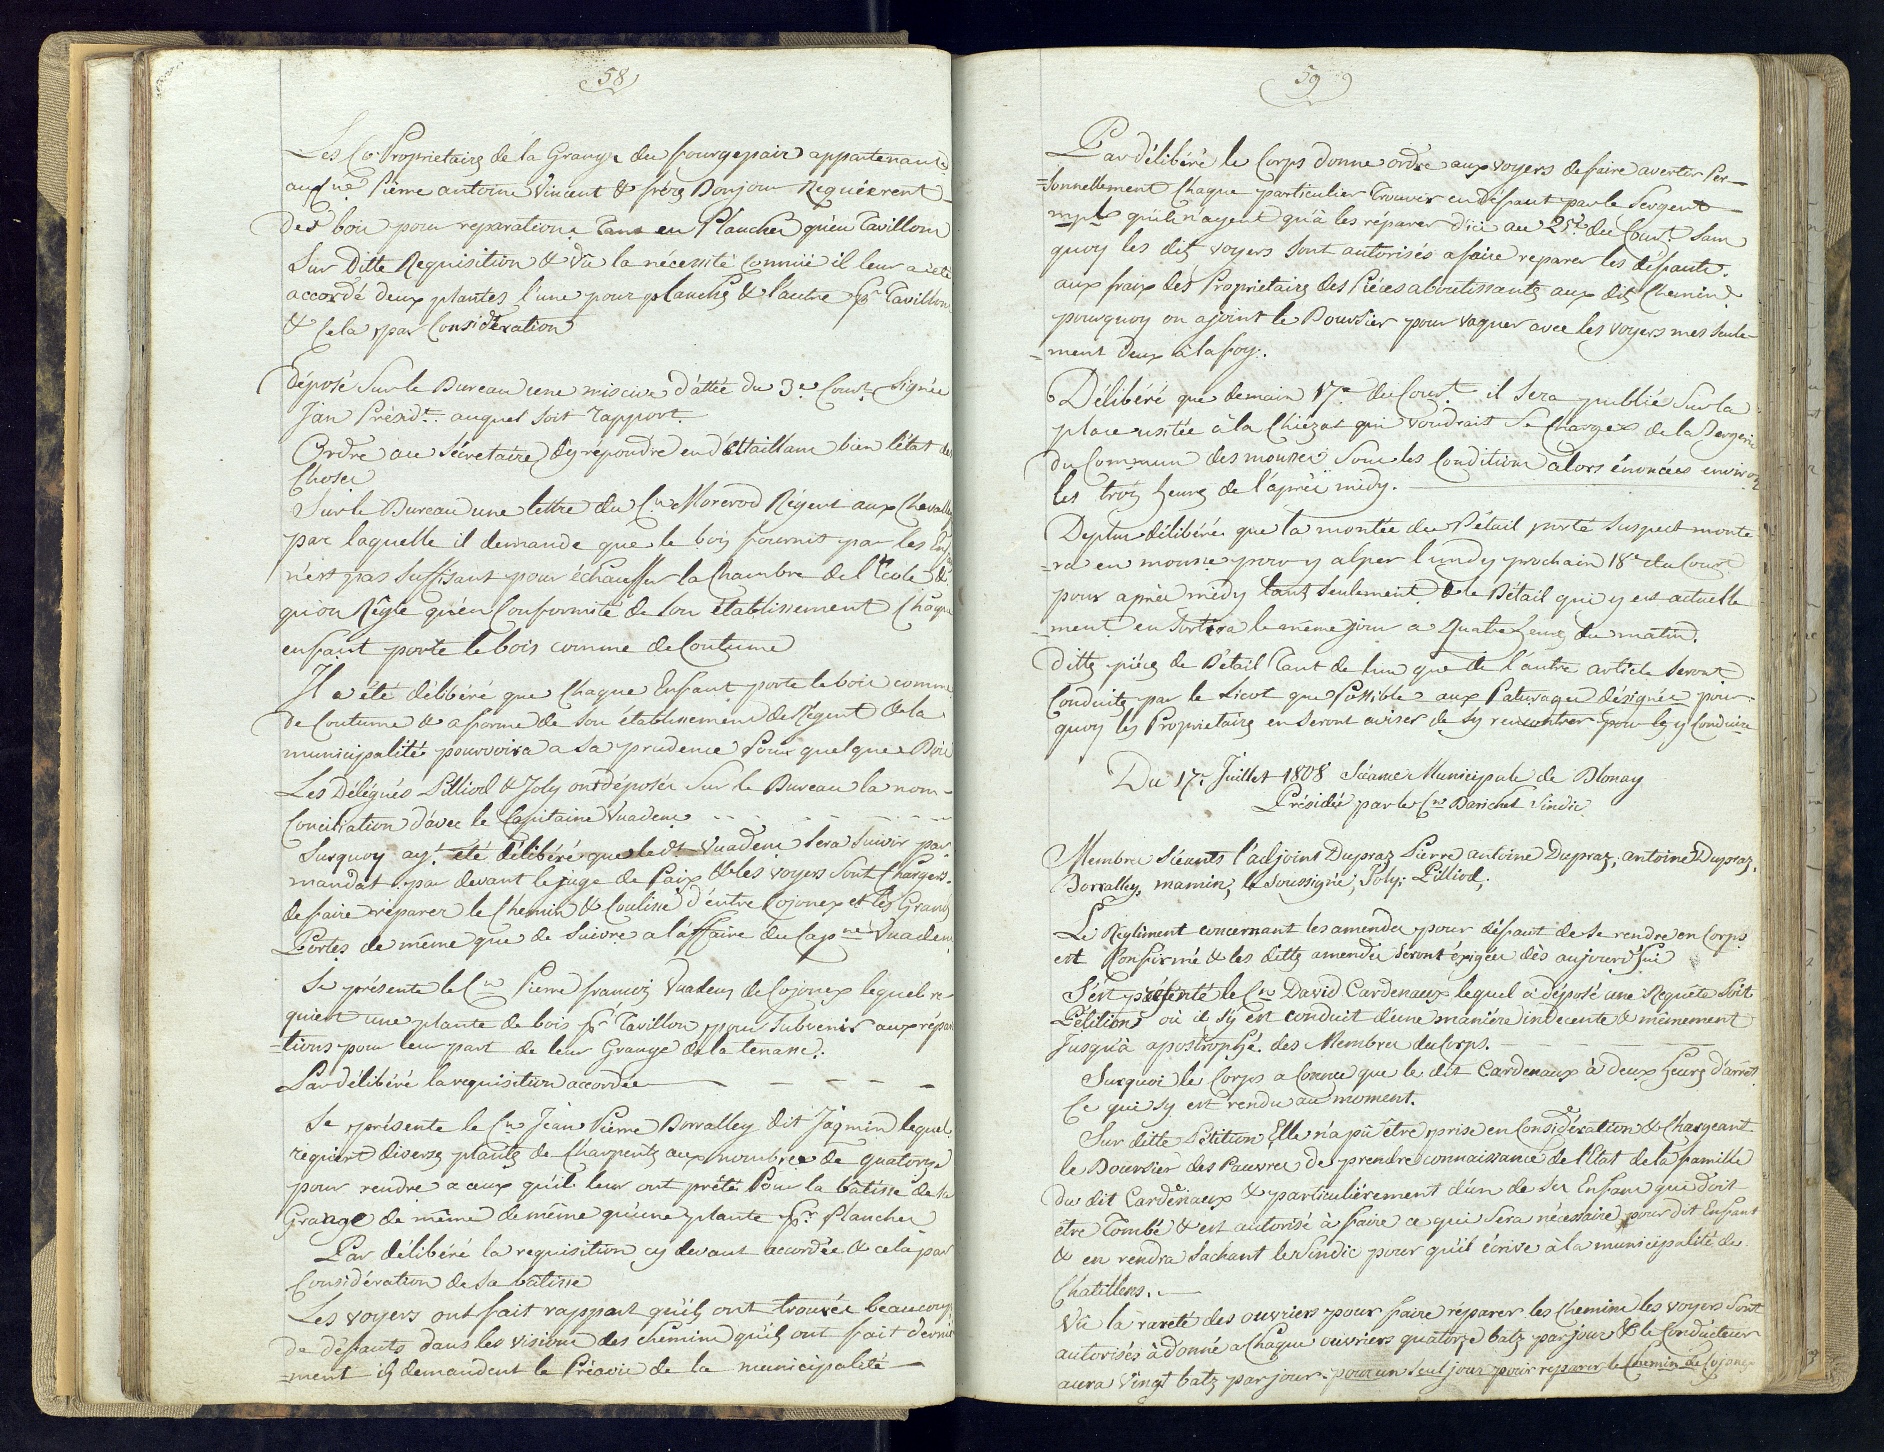 58
Les Co Proprietaires de la Grange du fourgepair appartenante
aux Pierre antoine Vincent & frères Bonjour Requièrent
des bois pour reparations Tans en Planches qu'en Tavillons
Sur Ditte Requisition & Vû la nécessité Connüe il leur a été
accordé deux plantes l'une pour planches & l'autre pr Tavillons
& Cela par Considération
Déposé Sur le Bureau une missive d'attée du 3e Court Signée
Jan Présidt auquel soit rapport
Ordre au Sécretaire d'y répondre en déttaillans bien l'état des
Choses
Sur le Bureau une lettre du Cn Morerod Régent aux Chevalles
par laquelle il demande que le bois fournit par les Enf
n'est pas Suffisant pour échauffer la Chambre de l'école &
qu'on Règle qu'en Conformité de son établissement Chaque
enfant porte le bois comme de Coutume
Il a été délibéré que Chaque Enfant porte le bois comme
de Coutume & a forme de son établissement de Régent & la
municipalité pourvoira a sa prudence Pour quelque Bois
Les Délégués Pilliod & Joly ont déposés Sur le Bureau la non-
Conciliation d'avec le Capitaine Vuadens - - - - -
Surquoy ayt été délibéré que ledt Vuadens sera Suivir par
mandat par devant le juge de Paix & les voyers sont Chargers
de faire réparer le Chemin & Coulisse d'entre Cojonex et les Grands
Portes de même que de Suivre a l'affaire du Capne Vuadens
Se présente le Cn Pierre francois Vuadens de Cojonex lequel re-
quiert une plante de bois pr Tavillon pour Subvenir aux répar
=tions pour leur part de leur Grange de la tenasse.
Par délibéré la requisition accordée - - - -
Se présente le Cn Jean Pierre Borralley dit Jaqmin lequel
requiert diverses plantes de Charpentes aux nombres de quatorze
pour rendre a ceux qu'ils leur ont prêté Pour la bâtisse de sa
Grange de même de même qu'une plante pr Planches
Par délibéré la requisition cy devant accordée & cela par
Considération de sa bâtisse
Les voyers ont fait rapport qu'ils ont trouvés beaucoup
de défauts dans les visions des chemins qu'ils ont fait dernié
=ment ils demandent le Préavis de la municipalité -
59
Par délibéré le Corps donne ordre aux voyers de faire avertir Per-
=sonnellement Chaque particulier Trouver en défaut par le Sergent
mpl qu'ils n'ayent qu'à les réparer d'ici au 25e du Court Sans
quoy les dits voyers sont autorisés a faire reparer les défauts.
aux fraix des Proprietaires des Pièces aboutissantes aux dits Chemins
pourquoy on ajoint le Boursier pour vaquer avec les voyers mes seule-
=ment deux à la foy.
Délibéré que demain 17e du Court il sera publié Sur la
place usitée à la Chiézaz qui voudrait Se Charger de la Bergerie
du Commun des mouses Sous les Condition alors énoncées environ
les trois heures de l'après midy.
Deplus délibéré que la montée du Bétail porté Suspect monte
=ra en mouse pour y alper lundy prochain 18e du Court
pour après midy tant Seulement & le Bétail qui y est actuelle
=ment en Sortira le même jour a Quatre heures du matin.
Dittes pièces de Bétail Tant de l'un que de l'autre article Seront
Conduites par le Licot que Possible aux Paturages désignés pour
quoy les Proprietaires en Seront aviser de s'y rencontrer pour les y Conduire
Du 17e Juillet 1808 Séance Municipale de Blonay
Présidée par le Cn Barichet Sindic
Membres Séants l'adjoint Dupraz Pierre antoine Dupraz; antoine Dupraz,
Borralley, mamin; le Soussigné; Joly; Pilliod;
Le Réglèment concernant les amendes pour défaut de se rendre en Corps
est Confirmé & les dittes amendes seront éxigées dès aujourd'hui
S'est présenté le Cn David Cardenaux lequel a déposé une Requête Soit
Pétition où il s'y est conduit d'une manière indécente & mêmement
Jusqu'à apostrophé des Membres du Corps. - - -
Surquoi le Corps a Connu que le dit Cardenaux à deux heures d'arrêt
Ce qui s'y est rendu au moment.
Sur ditte Pétition Elle n'a pû être prise en Considération & Chargeant
le Boursier des Pauvres de prendre connaissance de l'Etat de la famille
du dit Cardenaux & particulièrement d'un de ses Enfans qui doit
être Tombé & est autorisé à faire ce qui Sera nécessaire pour dit Enfant
& en rendra Sachant le Sindic pour qu'il écrive à la municipalité de
Chatillens.
Vû la rareté des ouvriers pour faire réparer les Chemins les voyers Sont
autorisés à donné a Chaque ouvriers quatorze batz par jour & le Conducteur
aura Vingt batz par jour. pour un seul jour pour reparer le Chemin de Cojonex